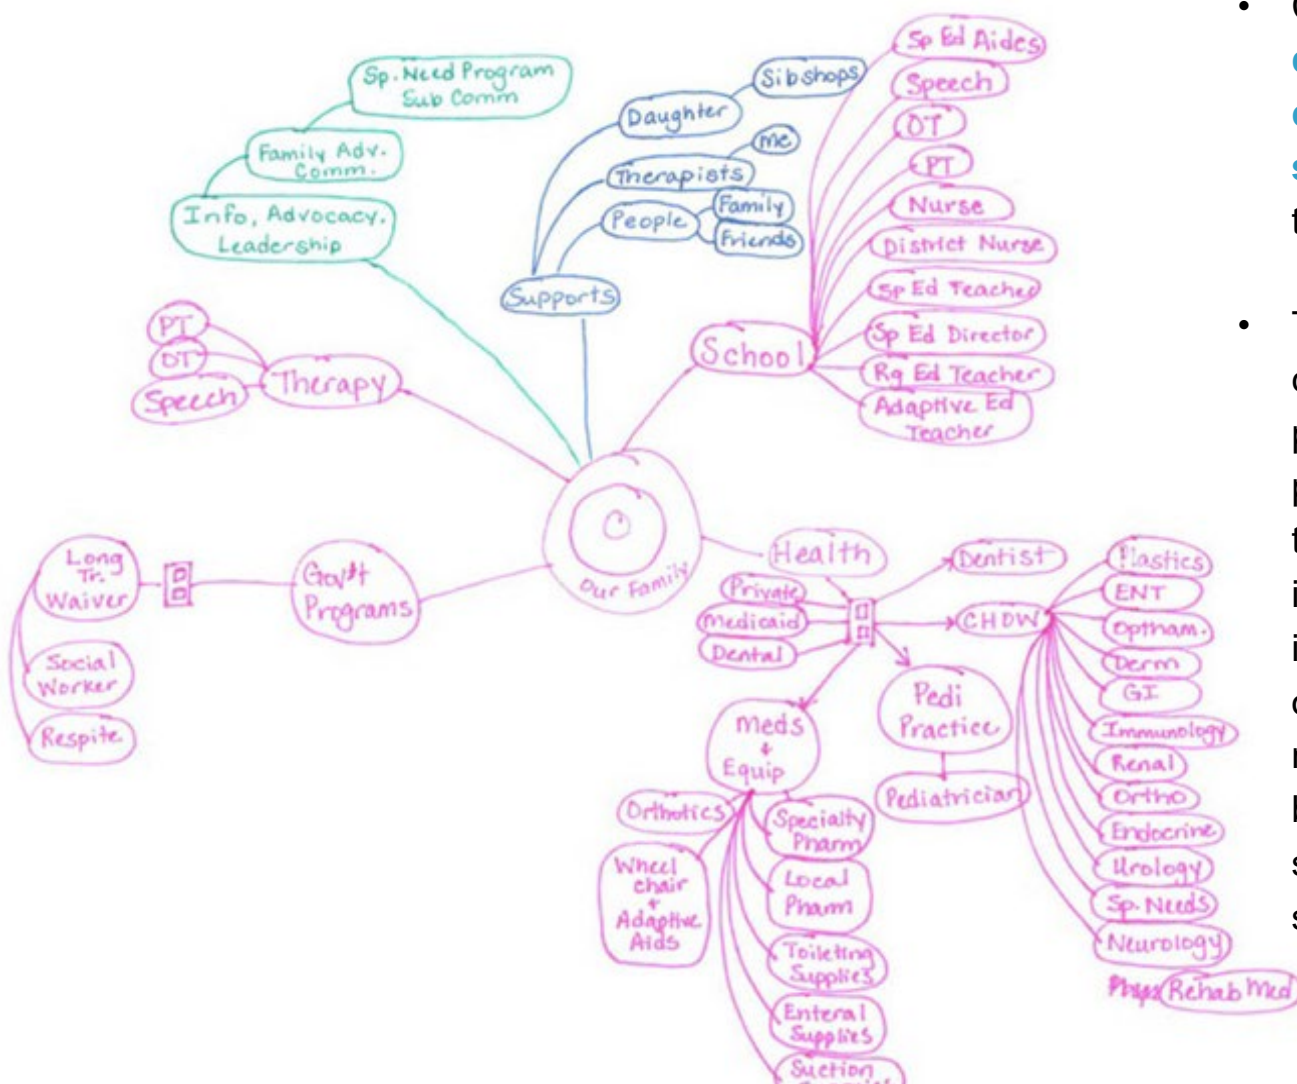 Sp. Need Program
Sub Comm
Family Adv.
Comm.
Info, Advocacy,
Leadership
Sibshops
Daughter
me
Therapists
People
Family
Friends
Supports
Sp Ed Aides
Speech
OT
PT
Nurse
District Nurse
Sp Ed Teacher
Sp Ed Director
Rg Ed Teacher
Adaptive Ed
Teacher
School
PT
OT
Speech
Therapy
Our Family
Long
Tr.
Waiver
Social
Worker
Respite
Gov't
Programs
Health
Private
Medicaid
Dental
Dentist
CHOW
Plastics
ENT
Optham.
Derm
GI
Immunology
Renal
Ortho
Endocrine
Urology
Sp. Needs
Neurology
Rehab Med
Pedi
Practice
Pediatrician
meds
+
Equip
Orthotics
Wheel
chair
+
Adaptive
Aids
Specialty
Pharm
Local
Pharm
Toileting
Supplies
Enteral
Supplies
Suction